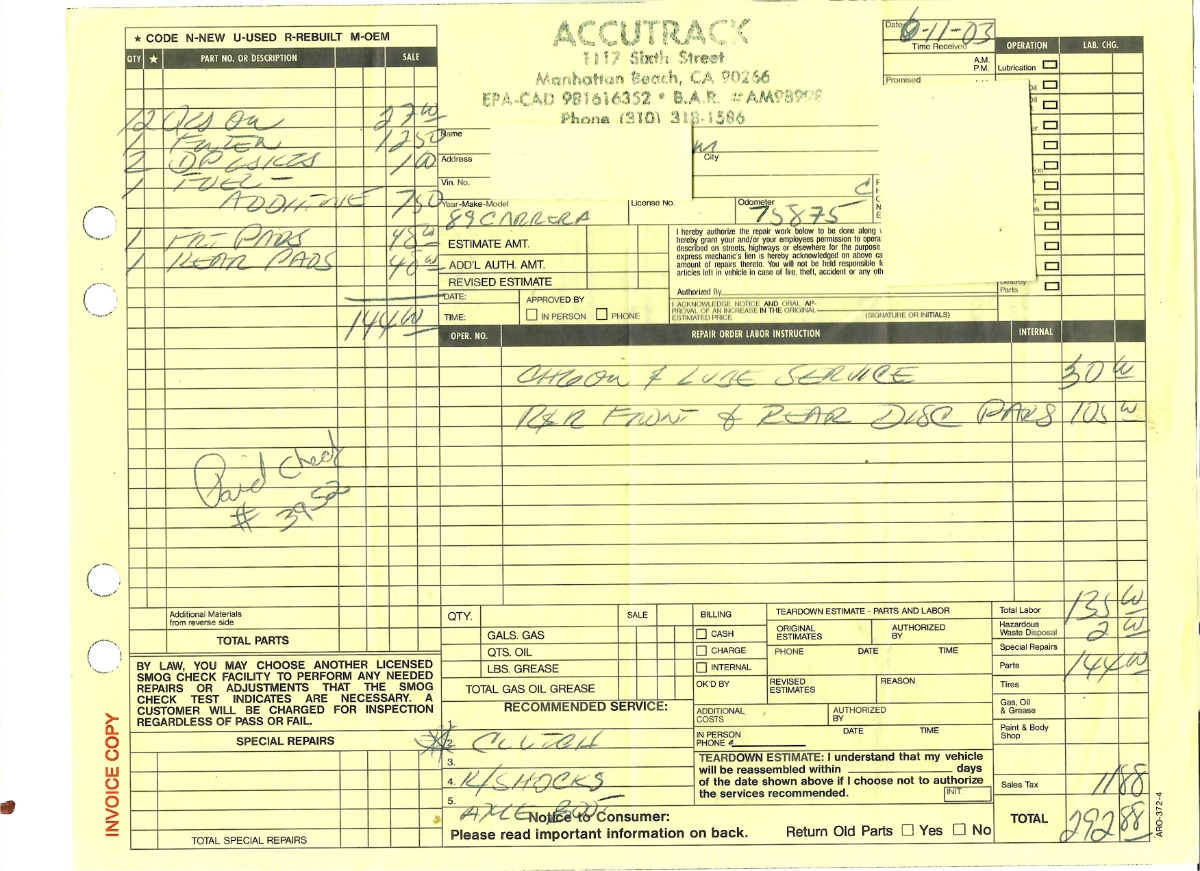 ★ CODE N-NEW U-USED R-REBUILT M-OEM
QTY ★ PART NO. OR DESCRIPTION SALE
12 QTS OIL 27 00
1 FILTER 12 50
2 DP GSKTS 1 00
1 FUEL
ADDITIVE 7 50
1 FRT PADS 48 00
1 REAR PADS 48 00
144 00
Paid Check
# 3952
Additional Materials
from reverse side
TOTAL PARTS
BY LAW, YOU MAY CHOOSE ANOTHER LICENSED
SMOG CHECK FACILITY TO PERFORM ANY NEEDED
REPAIRS OR ADJUSTMENTS THAT THE SMOG
CHECK TEST INDICATES ARE NECESSARY. A
CUSTOMER WILL BE CHARGED FOR INSPECTION
REGARDLESS OF PASS OR FAIL.
SPECIAL REPAIRS
TOTAL SPECIAL REPAIRS
INVOICE COPY
ACCUTRACK
1117 Sixth Street
Manhattan Beach, CA 90266
EPA-CAD 981616352 • B.A.R. #AM98998
Phone (310) 318-1586
Date 6-11-03
Time Received
A.M.
P.M.
Promised
OPERATION LAB. CHG.
Lubrication
Name
Address City
Vin. No.
Year-Make-Model License No. Odometer PHONE
89 CARRERA 75875
ESTIMATE AMT.
ADD'L AUTH. AMT.
REVISED ESTIMATE
DATE: APPROVED BY
TIME: IN PERSON PHONE
I hereby authorize the repair work below to be done along
hereby grant your and/or your employees permission to opera
described on streets, highways or elsewhere for the purpose
express mechanic's lien is hereby acknowledged on above ca
amount of repairs thereto. You will not be held responsible f
articles left in vehicle in case of fire, theft, accident or any oth
Authorized By
I ACKNOWLEDGE NOTICE AND ORAL AP-
PROVAL OF AN INCREASE IN THE ORIGINAL
ESTIMATED PRICE. (SIGNATURE OR INITIALS)
Destroy
Parts
OPER. NO. REPAIR ORDER LABOR INSTRUCTION INTERNAL
CHG OIL & LUBE SERVICE 30 00
R&R FRONT & REAR DISC PADS 105 00
QTY. SALE
GALS. GAS
QTS. OIL
LBS. GREASE
TOTAL GAS OIL GREASE
RECOMMENDED SERVICE:
1.
2. CLUTCH
3.
4. R/SHOCKS
5. AXLE BOOT
Notice to Consumer:
Please read important information on back.
BILLING
CASH
CHARGE
INTERNAL
OK'D BY
TEARDOWN ESTIMATE - PARTS AND LABOR
ORIGINAL ESTIMATES AUTHORIZED BY
PHONE DATE TIME
REVISED ESTIMATES REASON
ADDITIONAL COSTS AUTHORIZED BY
IN PERSON DATE TIME
PHONE #
TEARDOWN ESTIMATE: I understand that my vehicle
will be reassembled within days
of the date shown above if I choose not to authorize
the services recommended. INIT.
Return Old Parts Yes No
Total Labor 135 00
Hazardous Waste Disposal 2 00
Special Repairs
Parts 144 00
Tires
Gas, Oil & Grease
Paint & Body Shop
Sales Tax 11 88
TOTAL 292 88
ARO-372-4